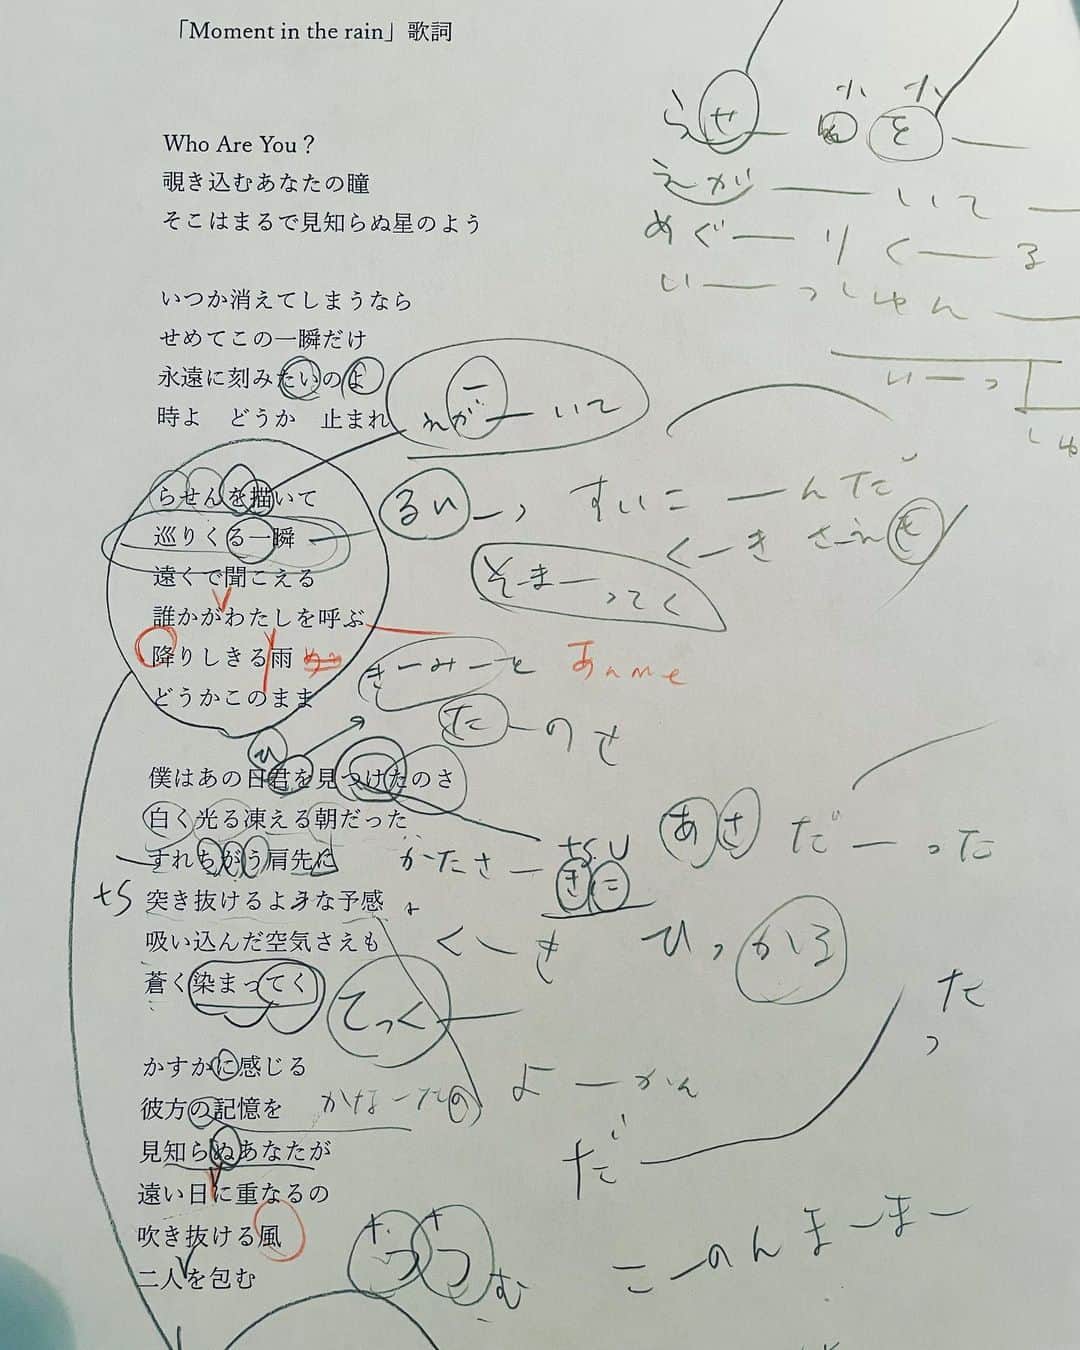 「Moment in the rain」歌詞
らせんを
Who Are You？
えがーいて
覗き込むあなたの瞳
めぐーりくーる
そこはまるで見知らぬ星のよう
いーっしゅん
いつか消えてしまうなら
せめてこの一瞬だけ
いーっ
永遠に刻みたいのよ
しゅ
時よ　どうか　止まれ
えがーいて
らせんを描いて
るいーっ
すいこーんだ
巡りくる一瞬
くーきさえも
遠くで聞こえる
そまーってく
誰かがわたしを呼ぶ
降りしきる雨
きーみーを
あnme
どうかこのまま
たーのさ
ひ
僕はあの日君を見つけたのさ
白く光る凍える朝だった
あさだーった
すれちがう肩先に
かたさーきに
tsu
ts
突き抜けるような予感
吸い込んだ空気さえも
くーき
ひっかる
蒼く染まってく
てっく
たっ
かすかに感じる
よーかん
彼方の記憶を
かなーたの
見知らぬあなたが
だ
遠い日に重なるの
吹き抜ける風
こーのんまーまー
二人を包む
つつむ